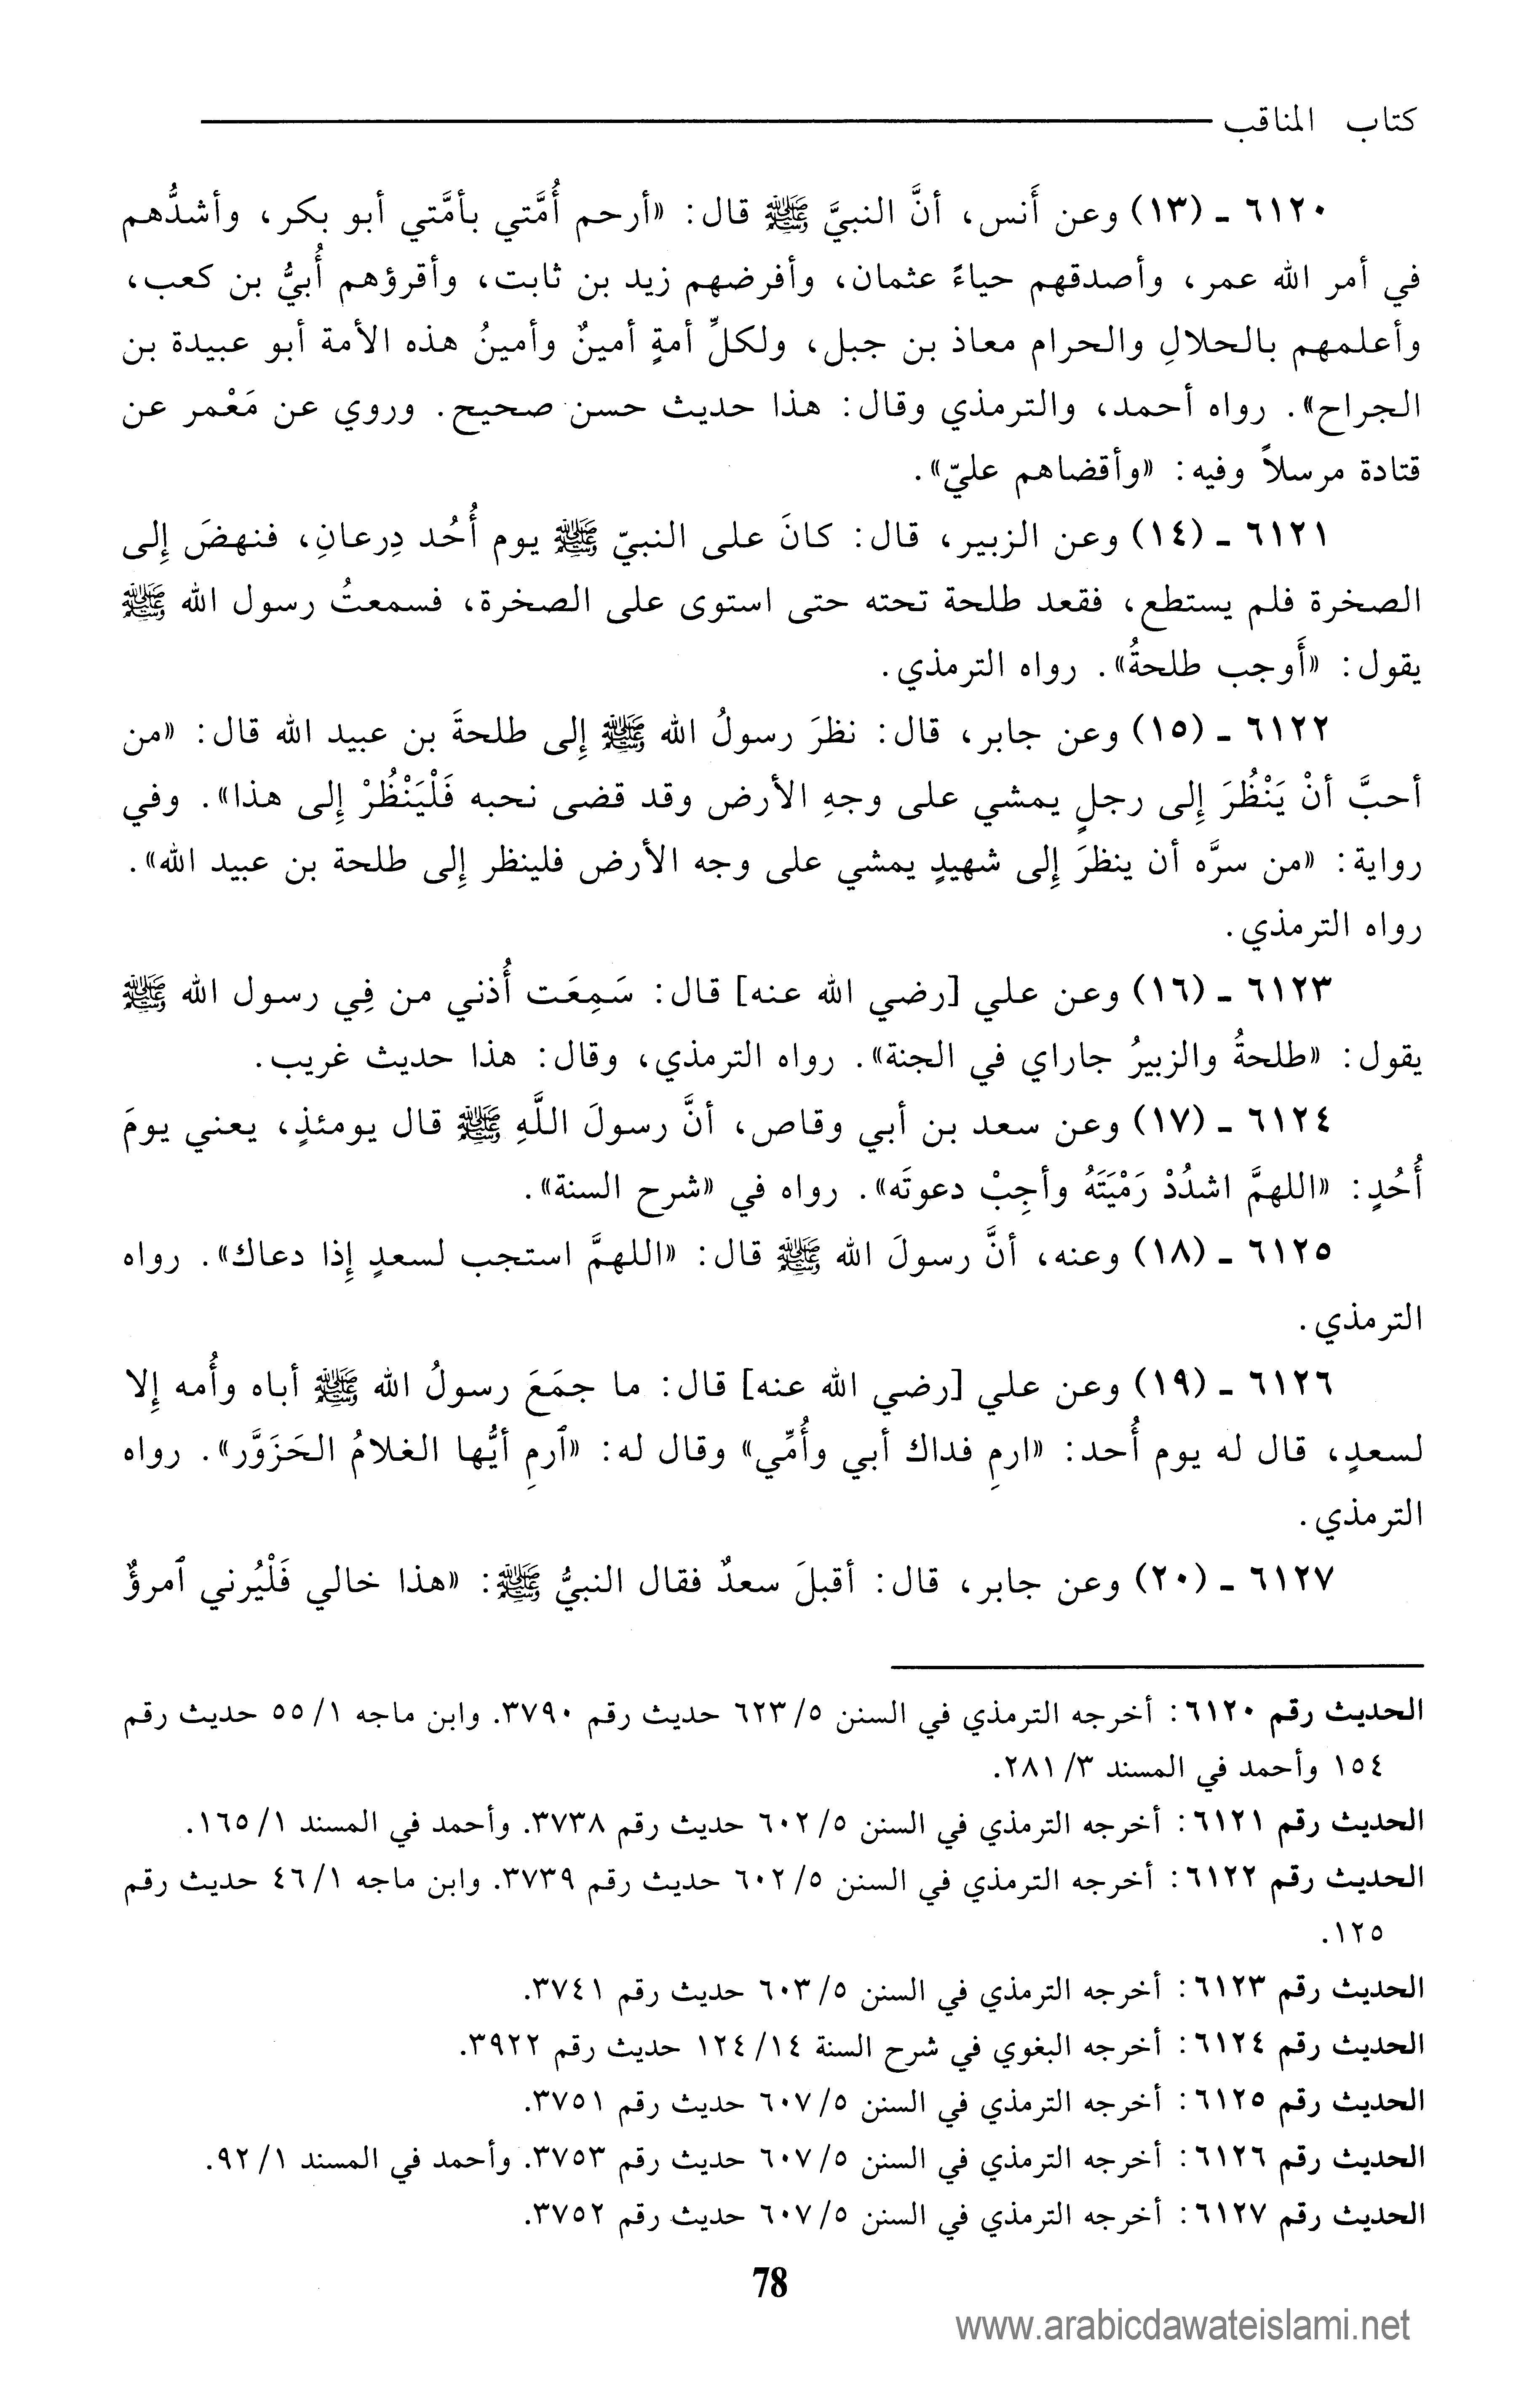 كتاب المناقب
٦١٢٠ ـ (١٣) وعن أَنس، أنَّ النبيَّ ﷺ قال: «أرحم أُمَّتي بأمَّتي أبو بكر، وأشدُّهم
في أمر الله عمر، وأصدقهم حياءً عثمان، وأفرضهم زيد بن ثابت، وأقرؤهم أُبيُّ بن كعب،
وأعلمهم بالحلالِ والحرام معاذ بن جبل، ولكلِّ أمةٍ أمينٌ وأمينُ هذه الأمة أبو عبيدة بن
الجراح». رواه أحمد، والترمذي وقال: هذا حديث حسن صحيح. وروي عن مَعْمر عن
قتادة مرسلاً وفيه: «وأقضاهم عليّ».
٦١٢١ ـ (١٤) وعن الزبير، قال: كانَ على النبيّ ﷺ يوم أُحُد دِرعانِ، فنهضَ إِلى
الصخرة فلم يستطع، فقعد طلحة تحته حتى استوى على الصخرة، فسمعتُ رسول الله ﷺ
يقول: «أَوجب طلحةُ». رواه الترمذي.
٦١٢٢ ـ (١٥) وعن جابر، قال: نظرَ رسولُ الله ﷺ إِلى طلحةَ بن عبيد الله قال: «من
أحبَّ أنْ يَنْظُرَ إِلى رجلٍ يمشي على وجهِ الأرض وقد قضى نحبه فَلْيَنْظُرْ إِلى هذا». وفي
رواية: «من سرَّه أن ينظرَ إِلى شهيدٍ يمشي على وجه الأرض فلينظر إِلى طلحة بن عبيد الله».
رواه الترمذي.
٦١٢٣ ـ (١٦) وعن علي [رضي الله عنه] قال: سَمِعَت أُذني من فِي رسول الله ﷺ
يقول: «طلحةُ والزبيرُ جاراي في الجنة». رواه الترمذي، وقال: هذا حديث غريب.
٦١٢٤ ـ (١٧) وعن سعد بن أبي وقاص، أنَّ رسولَ اللَّهِ ﷺ قال يومئذٍ، يعني يومَ
أُحُدٍ: «اللهمَّ اشدُدْ رَمْيَتَهُ وأجِبْ دعوتَه». رواه في «شرح السنة».
٦١٢٥ ـ (١٨) وعنه، أنَّ رسولَ الله ﷺ قال: «اللهمَّ استجب لسعدٍ إِذا دعاك». رواه
الترمذي.
٦١٢٦ ـ (١٩) وعن علي [رضي الله عنه] قال: ما جمَعَ رسولُ الله ﷺ أباه وأُمه إِلا
لسعدٍ، قال له يوم أُحد: «ارمِ فداك أبي وأُمِّي» وقال له: «ٱرمِ أيُّها الغلامُ الحَزَوَّر». رواه
الترمذي.
٦١٢٧ ـ (٢٠) وعن جابر، قال: أقبلَ سعدٌ فقال النبيُّ ﷺ: «هذا خالي فَلْيُرني ٱمرؤٌ
الحديث رقم ٦١٢٠: أخرجه الترمذي في السنن ٥/ ٦٢٣ حديث رقم ٣٧٩٠. وابن ماجه ١/ ٥٥ حديث رقم
١٥٤ وأحمد في المسند ٣/ ٢٨١.
الحديث رقم ٦١٢١: أخرجه الترمذي في السنن ٥/ ٦٠٢ حديث رقم ٣٧٣٨. وأحمد في المسند ١/ ١٦٥.
الحديث رقم ٦١٢٢: أخرجه الترمذي في السنن ٥/ ٦٠٢ حديث رقم ٣٧٣٩. وابن ماجه ١/ ٤٦ حديث رقم
١٢٥.
الحديث رقم ٦١٢٣: أخرجه الترمذي في السنن ٥/ ٦٠٣ حديث رقم ٣٧٤١.
الحديث رقم ٦١٢٤: أخرجه البغوي في شرح السنة ١٤/ ١٢٤ حديث رقم ٣٩٢٢.
الحديث رقم ٦١٢٥: أخرجه الترمذي في السنن ٥/ ٦٠٧ حديث رقم ٣٧٥١.
الحديث رقم ٦١٢٦: أخرجه الترمذي في السنن ٥/ ٦٠٧ حديث رقم ٣٧٥٣. وأحمد في المسند ١/ ٩٢.
الحديث رقم ٦١٢٧: أخرجه الترمذي في السنن ٥/ ٦٠٧ حديث رقم ٣٧٥٢.
78
www.arabicdawateislami.net